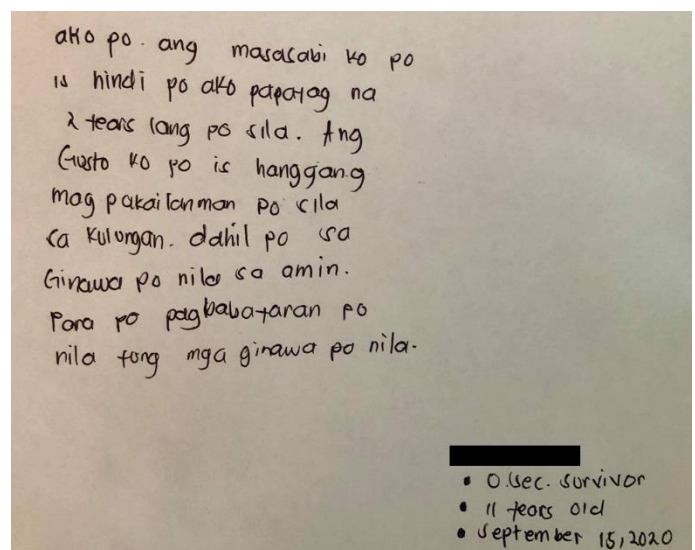 ako po. ang masasabi ko po
is hindi po ako papayag na
2 years lang po sila. Ang
Gusto ko po is hanggang
mag pakailanman po sila
sa kulungan. dahil po sa
Ginawa po nila sa amin.
Para po pagbabayaran po
nila tong mga ginawa po nila.
• O.sec. survivor
• 11 years old
• September 15, 2020